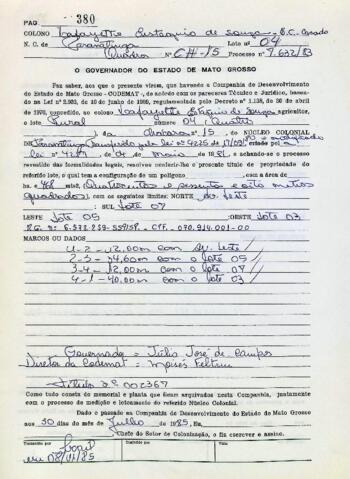 PAG. 380
COLONO Lafayette Eustáquio de Souza - B.C. Casado
N. C. de Paranatinga Lote nº 04
Quadra Nº CH-15 Processo nº 7.632/83
O GOVERNADOR DO ESTADO DE MATO GROSSO
Faz saber, aos que o presente virem, que havendo a Companhia de Desenvolvimento
do Estado de Mato Grosso - CODEMAT, de acôrdo com os pareceres Técnico e Jurídico, basea-
do na Lei nº de de junho de regulamentada pelo Decreto nº 1.138, de de abril
de 1970, concedido, ao colono Lafayette Eustáquio de Souza, agricultor,
o lote Rural número 04 (Quatro)
da Chácara nº 15, do NÚCLEO COLONIAL
DE Paranatinga estado pelo
lei nº de de maio de e achando-se o processo
revestido das formalidades legais, resolveu conferir-lhe o presente título de propriedade do
referido lote, o qual tem a configuração de um polígono com a área de
hs e 468 mts2, (Quatrocentos e sessenta e oito metros
quadrados) com os seguintes limites: NORTE Av. Leste
SUL Lote 07
LESTE Lote 05 OESTE Lote 03
R.G. nº 6.572.259-SSP/SP. - CPF. 070.914.001-00
MARCOS OU DADOS
1-2 - 12,00m com Av. Leste /
2-3 - 34,60m com o Lote 05 /
3-4 - 12,00m com o Lote 07 /
4-1 - 40,00m com o Lote 03 /
Governador = Júlio José de Campos
Diretor da Codemat = Moisés Feltrin
Título nº 002367
Como tudo consta do memorial e planta que foram arquivados nesta Companhia, juntamente
com o processo de medição e loteamento do referido Núcleo Colonial.
Dado e passado na Companhia de Desenvolvimento do Estado de Mato Grosso
aos 30 dias do mês de Julho de 1985, Eu,
Chefe do Setor de Colonização, o fiz escrever e assino.
Transcrito por Conferido por Visto
em 08/11/85